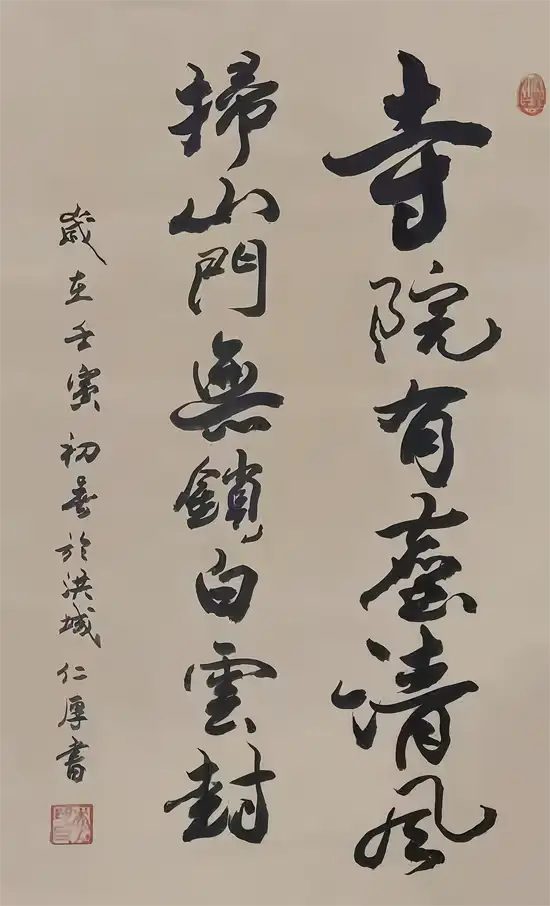 寺院有臺清風
掃山門無鎖白雲封
歲在壬寅初春於洪城仁厚書